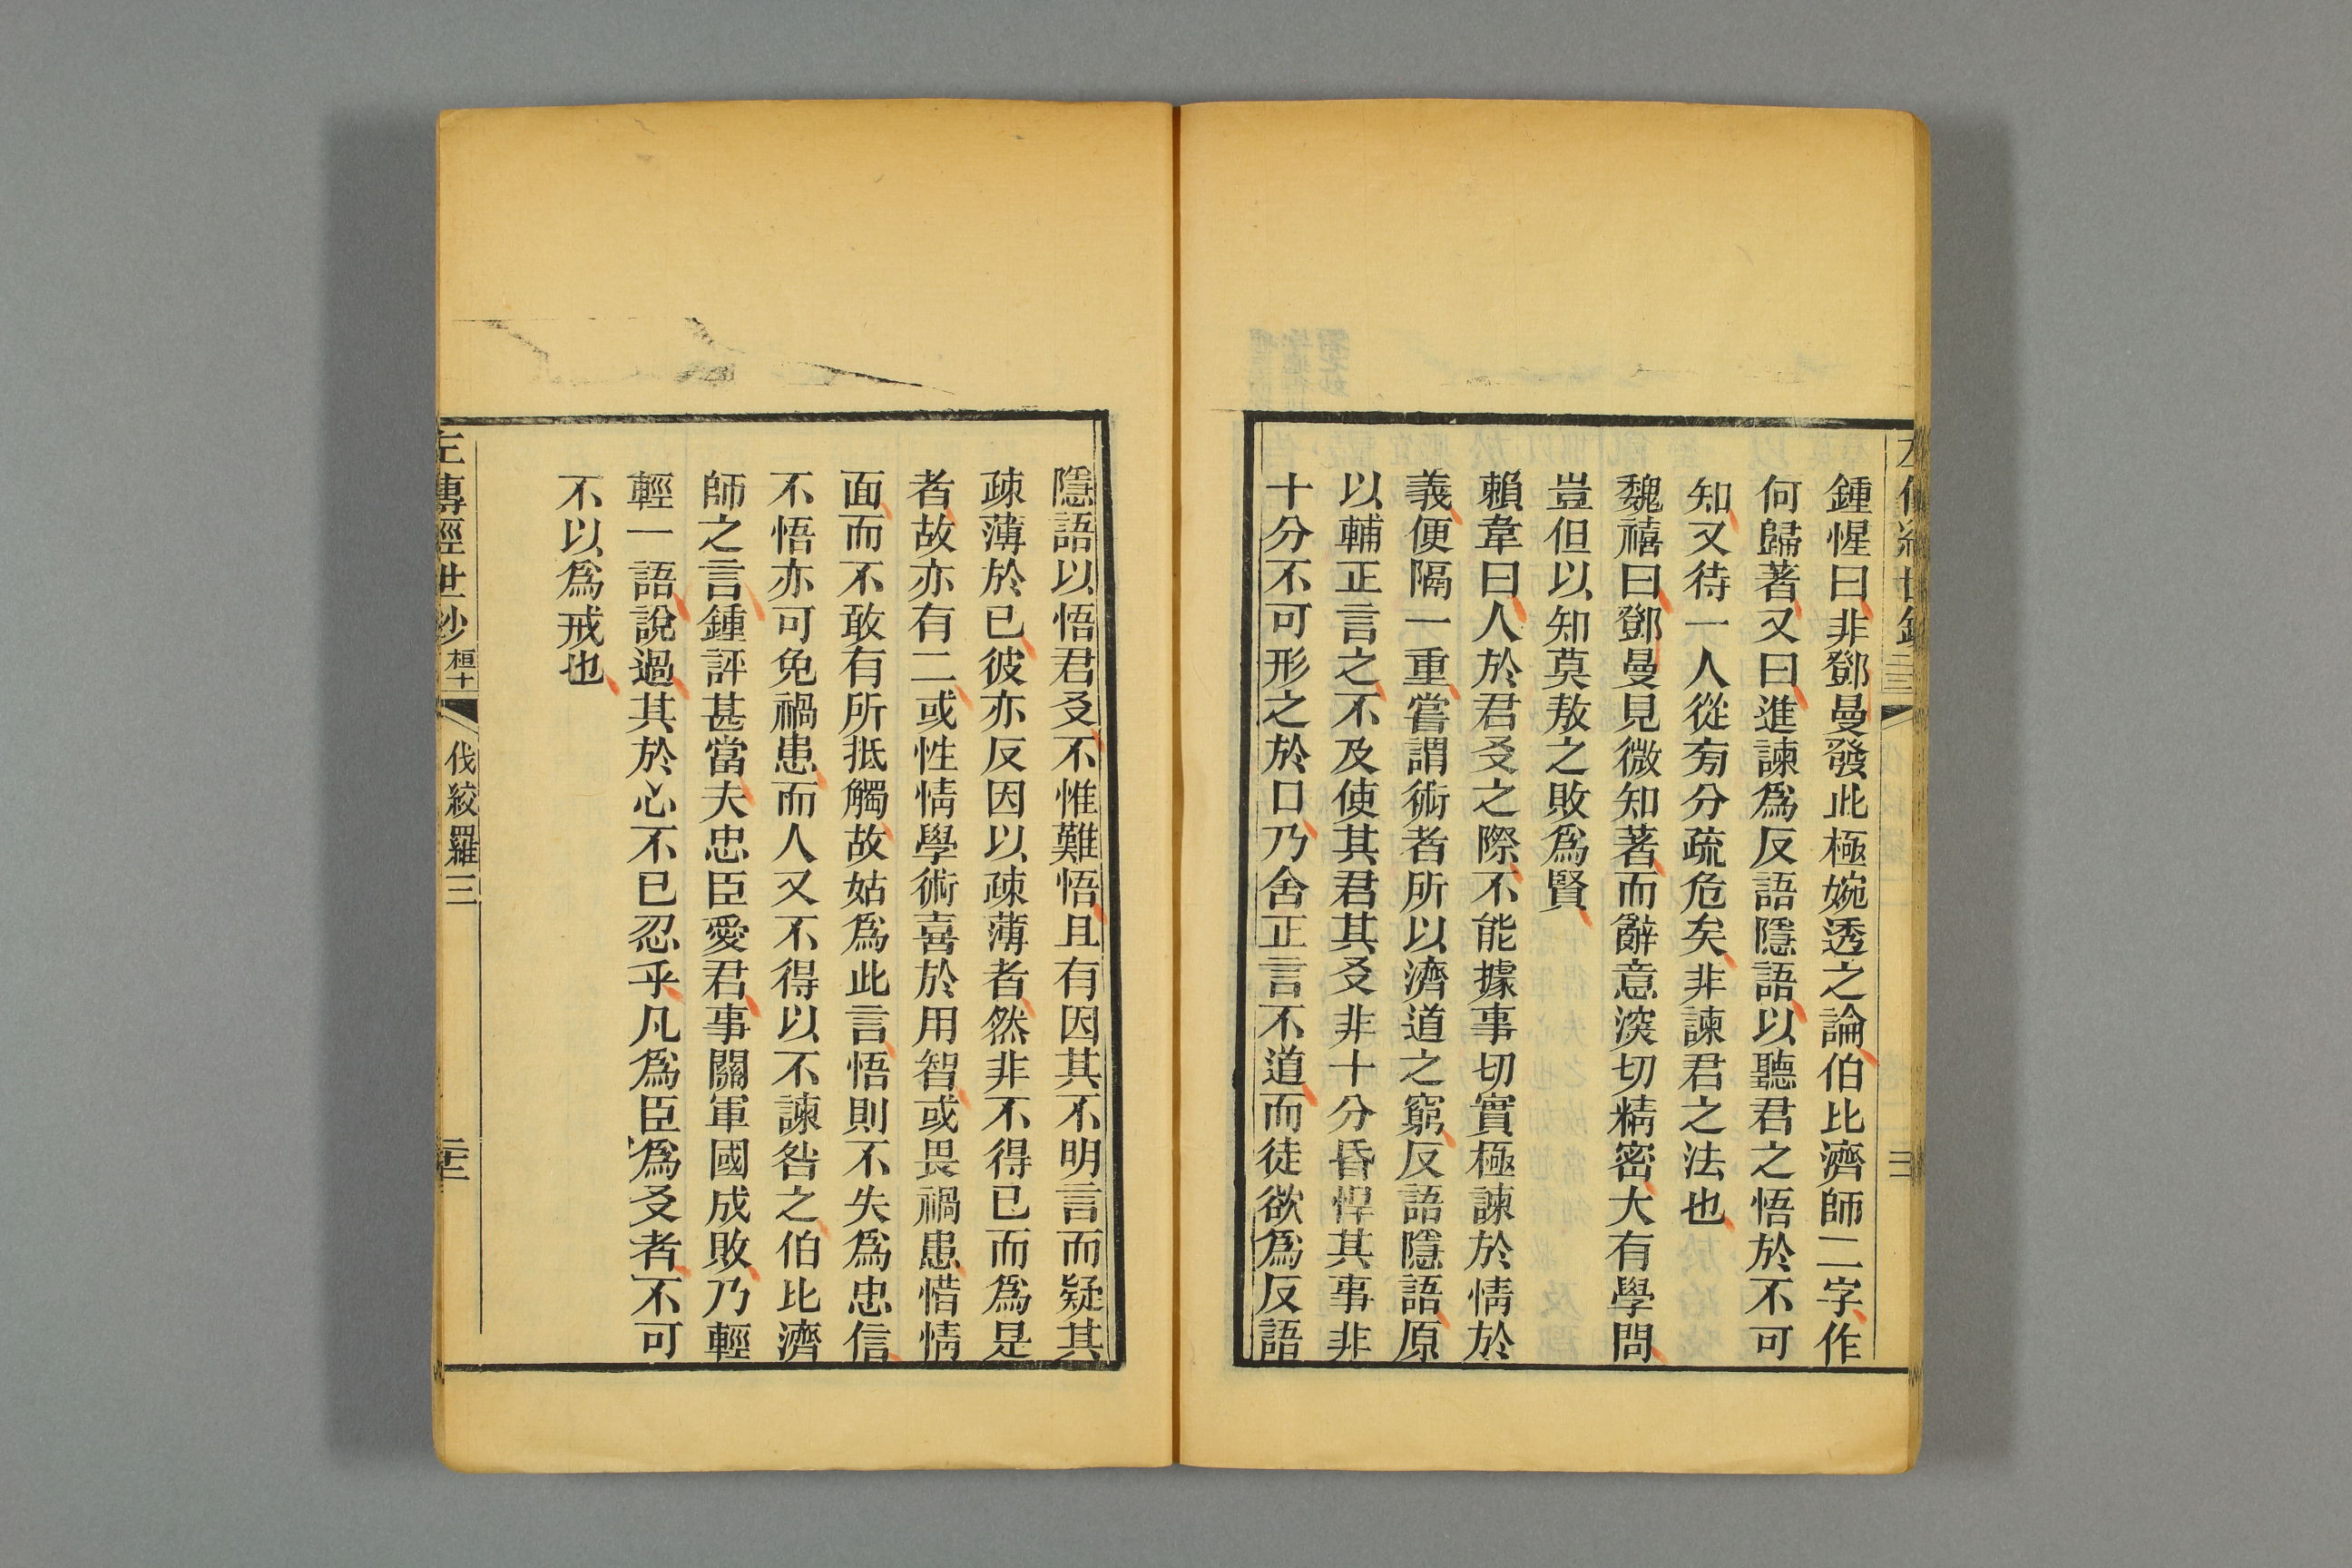 鍾惺曰非鄧曼發此極婉透之論伯比濟師二字作
何歸著又曰進諫爲反語隱語以聽君之悟於不可
知又待一人從旁分疏危矣非諫君之法也
魏禧曰鄧曼見微知著而辭意深切精密大有學問
豈但以知莫敖之敗爲賢
賴韋曰人於君父之際不能據事切實極諫於情於
義便隔一重嘗謂術者所以濟道之窮反語隱語原
以輔正言之不及使其君其父非十分昏悍其事非
十分不可形之於口乃舍正言不道而徒欲爲反語
隱語以悟君父不惟難悟且有因其不明言而疑其
疎薄於已彼亦反因以疎薄者然非不得已而爲是
者故亦有二或性情學術喜於用智或畏禍患惜情
面而不敢有所抵觸故姑爲此言悟則不失爲忠信
不悟亦可免禍患而人又不得以不諫咎之伯比濟
師之言鍾評甚當夫忠臣愛君事關軍國成敗乃輕
輕一語說過其於心不已忍乎凡爲臣爲父者不可
不以爲戒也
左傳經世鈔 桓十 伐絞羅三